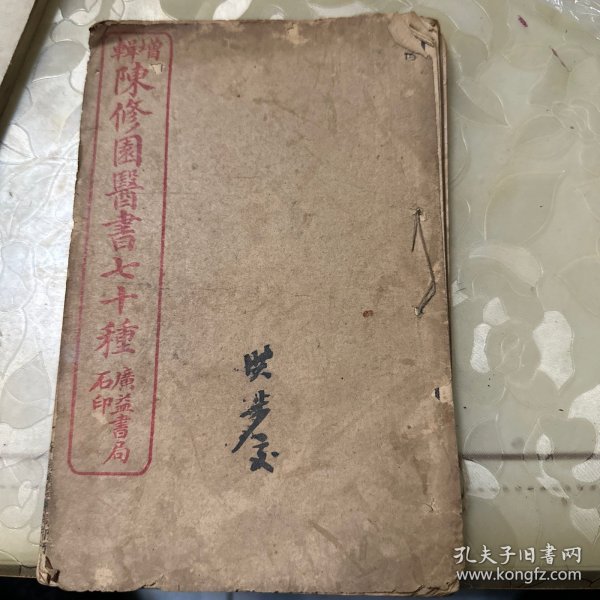 增輯
陳修園醫書七十種
廣益書局
石印
孔夫子旧书网
www.kongfz.com